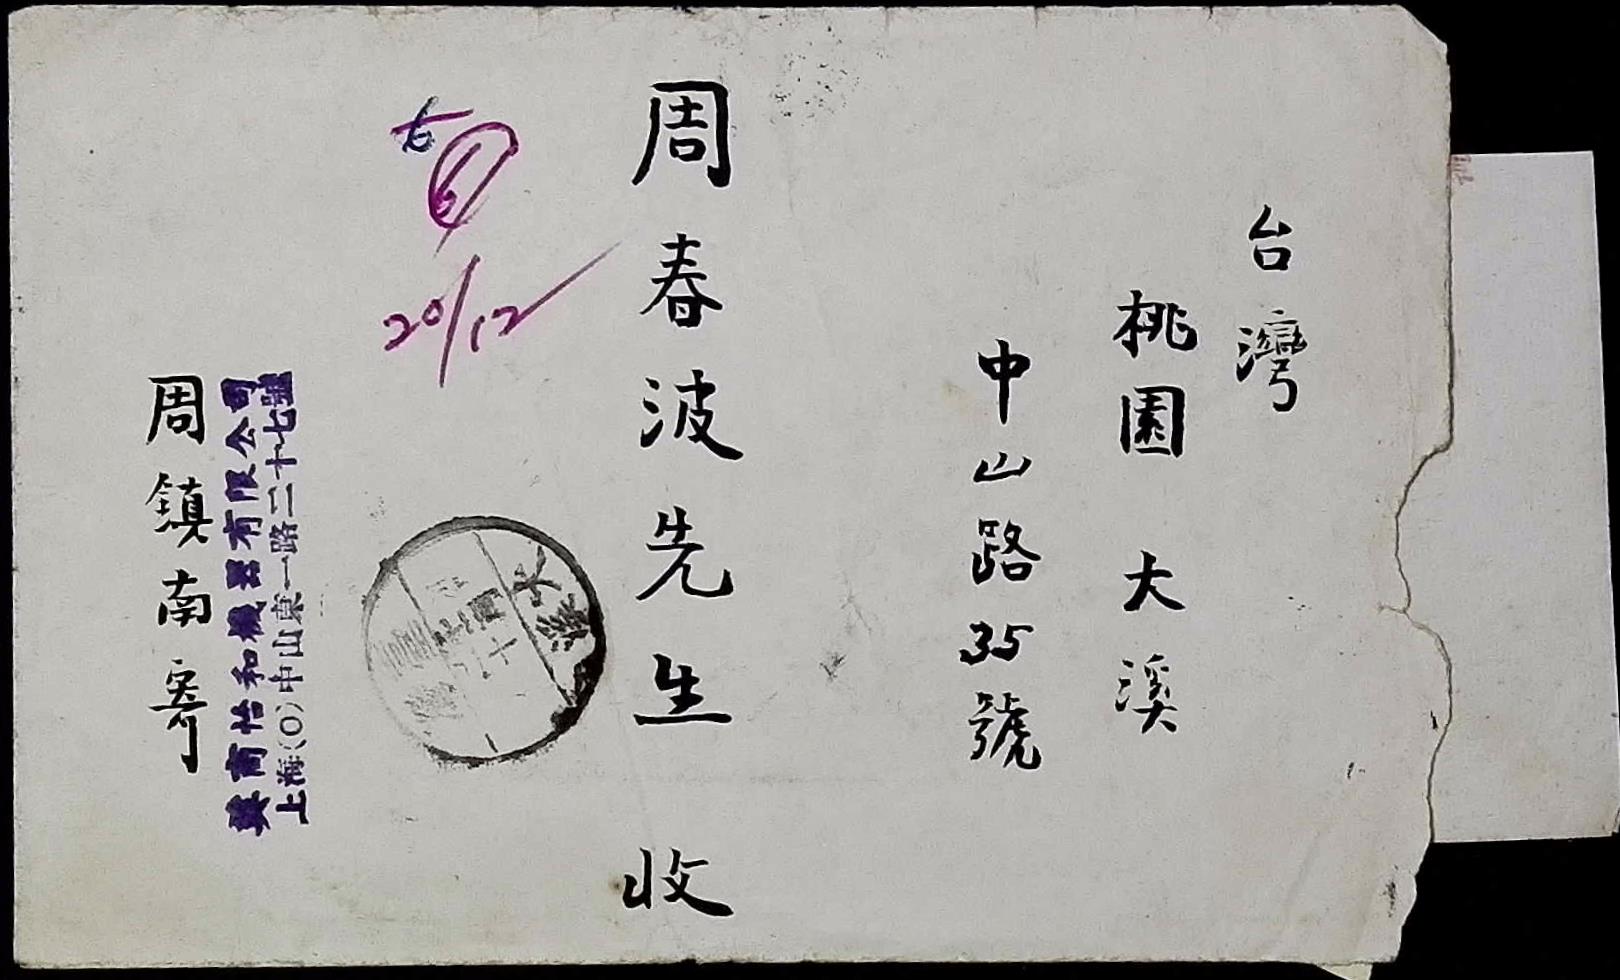 台灣
桃園 大溪
中山路35號
周春波先生 收
20/12
大溪
上海(0)中山東一路二十七號
英商怡和機器有限公司
周鎮南寄